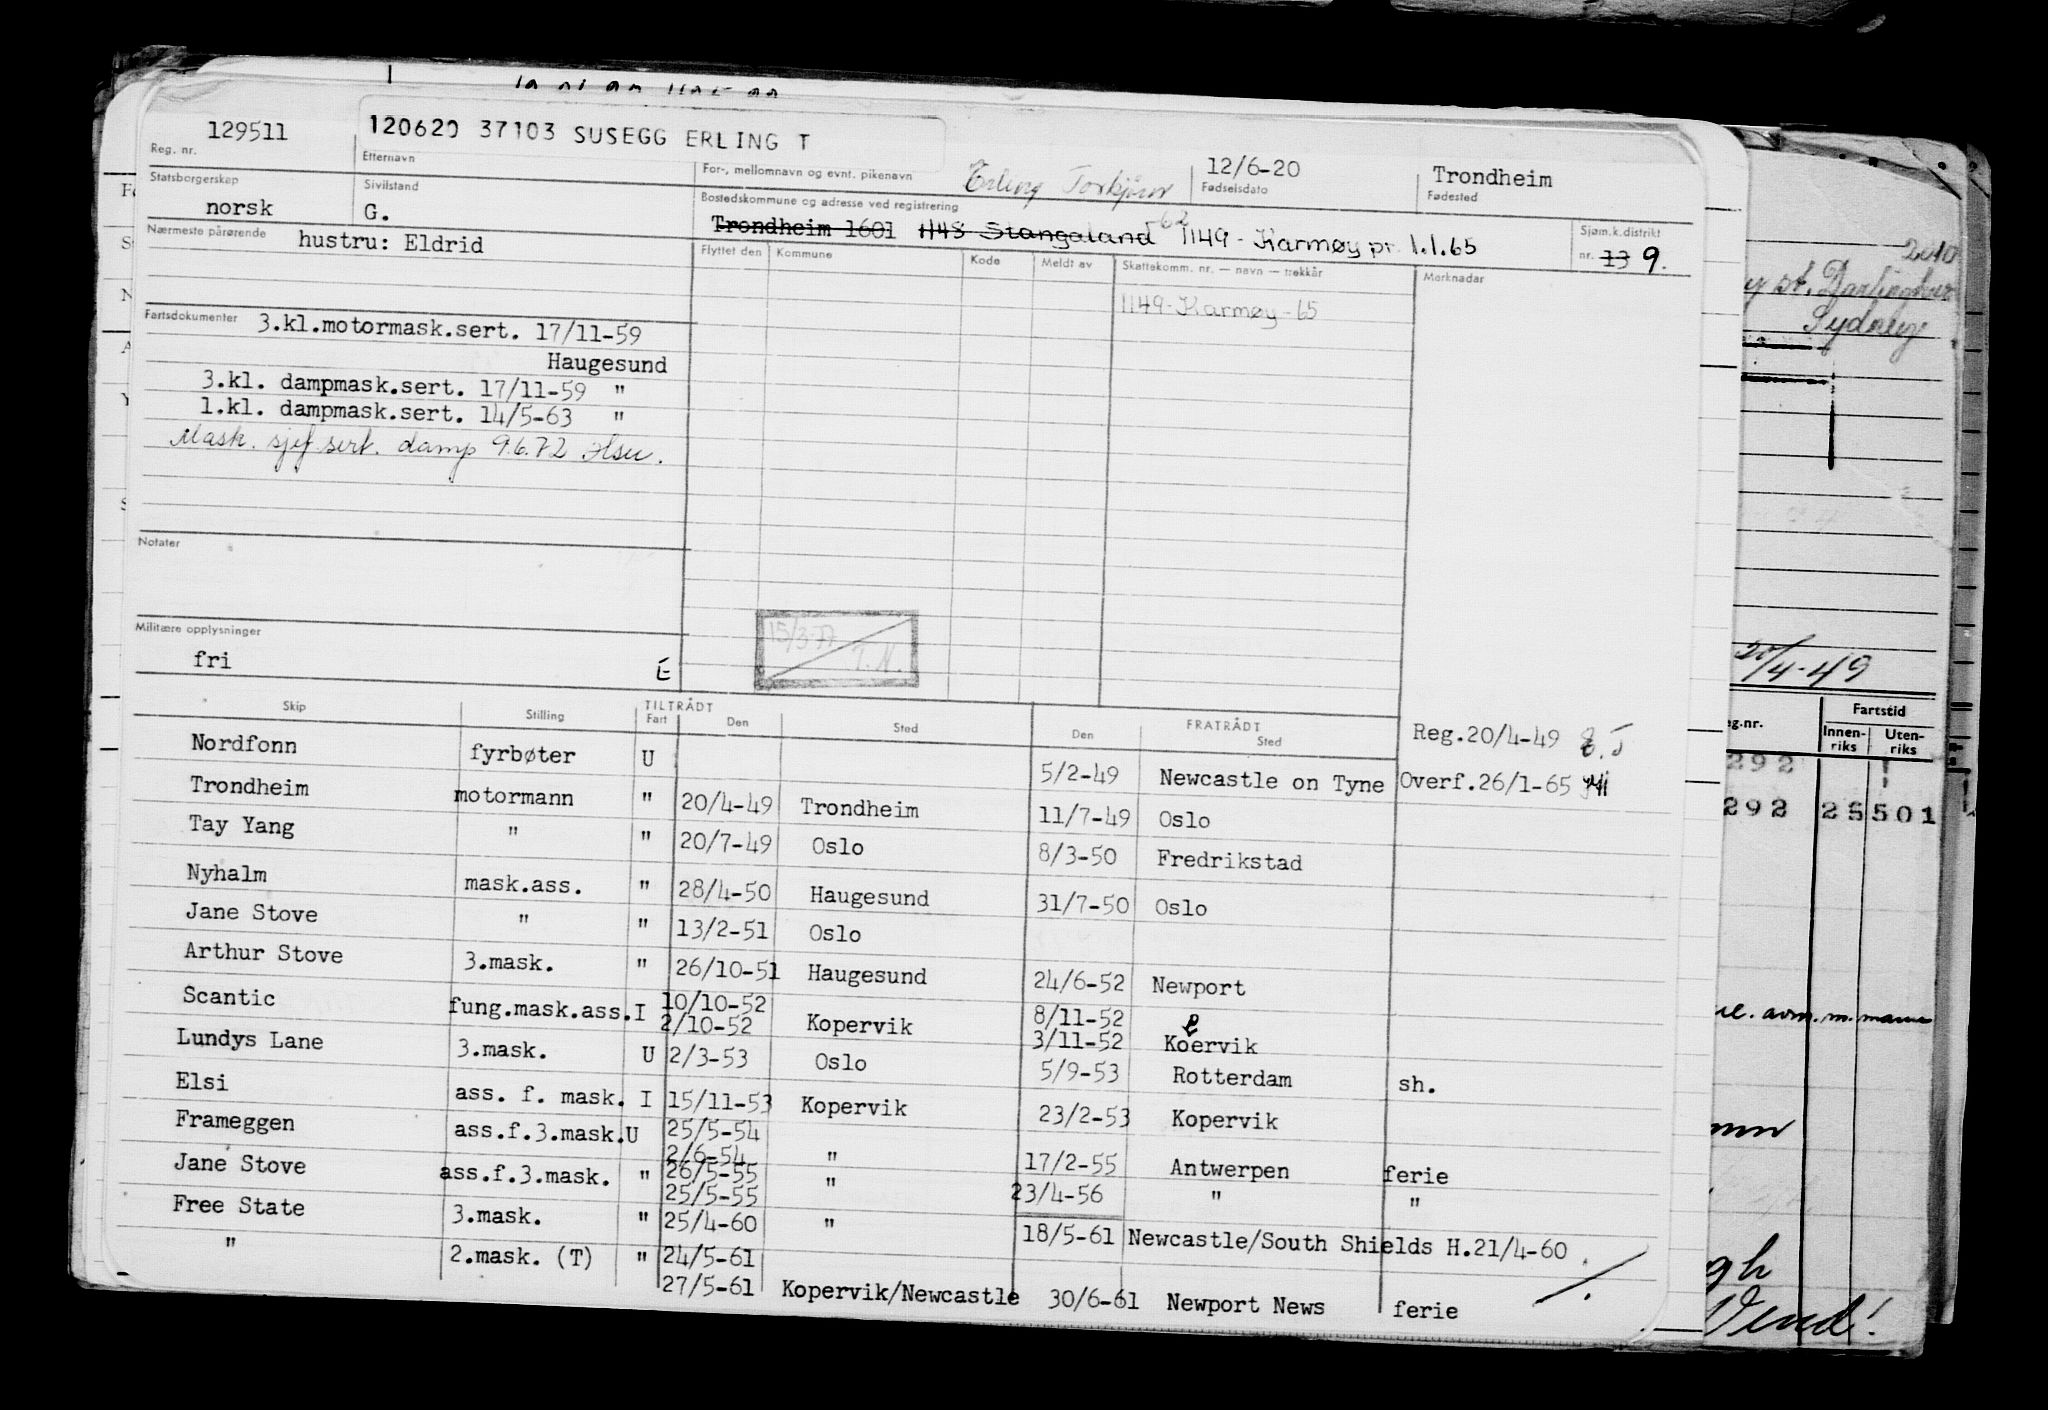 129511
120620 37103 SUSEGG ERLING T
Reg. nr.
Etternavn
For-, mellomnavn og evnt. pikenavn
Erling Torbjørn
12/6-20
Fødselsdato
Trondheim
Fødested
Statsborgerskap
norsk
Sivilstand
G.
Bostedskommune og adresse ved registrering
Trondheim 1601 1148 Stangaland -62 1149 - Karmøy pr. 1.1.65
Sjøm.k.distrikt
nr. 13 9.
Nærmeste pårørende hustru: Eldrid
Flyttet den Kommune Kode Meldt av Skattekomm. nr. – navn – trekkår Merknader
1149-Karmøy-65
Fartsdokumenter 3.kl.motormask.sert. 17/11-59
Haugesund
3.kl. dampmask.sert. 17/11-59 "
1.kl. dampmask.sert. 14/5-63 "
Mask. sjef sert. damp 9.6.72
Notater
15/3-77
T.N.
Militære opplysninger
fri
E
Skip Stilling TILTRÅDT Fart Den Sted FRATRÅDT Den Sted
Reg.20/4-49
Nordfonn fyrbøter U 5/2-49 Newcastle on Tyne Overf.26/1-65
Trondheim motormann " 20/4-49 Trondheim 11/7-49 Oslo
Tay Yang " " 20/7-49 Oslo 8/3-50 Fredrikstad
Nyhalm mask.ass. " 28/4-50 Haugesund 31/7-50 Oslo
Jane Stove " " 13/2-51 Oslo
Arthur Stove 3.mask. " 26/10-51 Haugesund 24/6-52 Newport
Scantic fung.mask.ass. I 10/10-52 8/11-52
2/10-52 Kopervik 3/11-52 Koervik
p
Lundys Lane 3.mask. U 2/3-53 Oslo 5/9-53 Rotterdam sh.
Elsi ass. f. mask. I 15/11-53 Kopervik 23/2-53 Kopervik
Frameggen ass.f.3.mask.U 25/5-54
2/6-54 " 17/2-55 Antwerpen ferie
Jane Stove ass.f.3.mask. " 26/5-55
25/5-55 " 23/4-56 " "
Free State 3.mask. " 25/4-60 " 18/5-61 Newcastle/South Shields H.21/4-60
" 2.mask. (T) " 24/5-61
27/5-61 Kopervik/Newcastle 30/6-61 Newport News ferie
2010
st. Darlinghur
Sydney
20/4-49
g.nr.
Fartstid
Innenriks
Utenriks
292
292 25 501
gh
Vend!